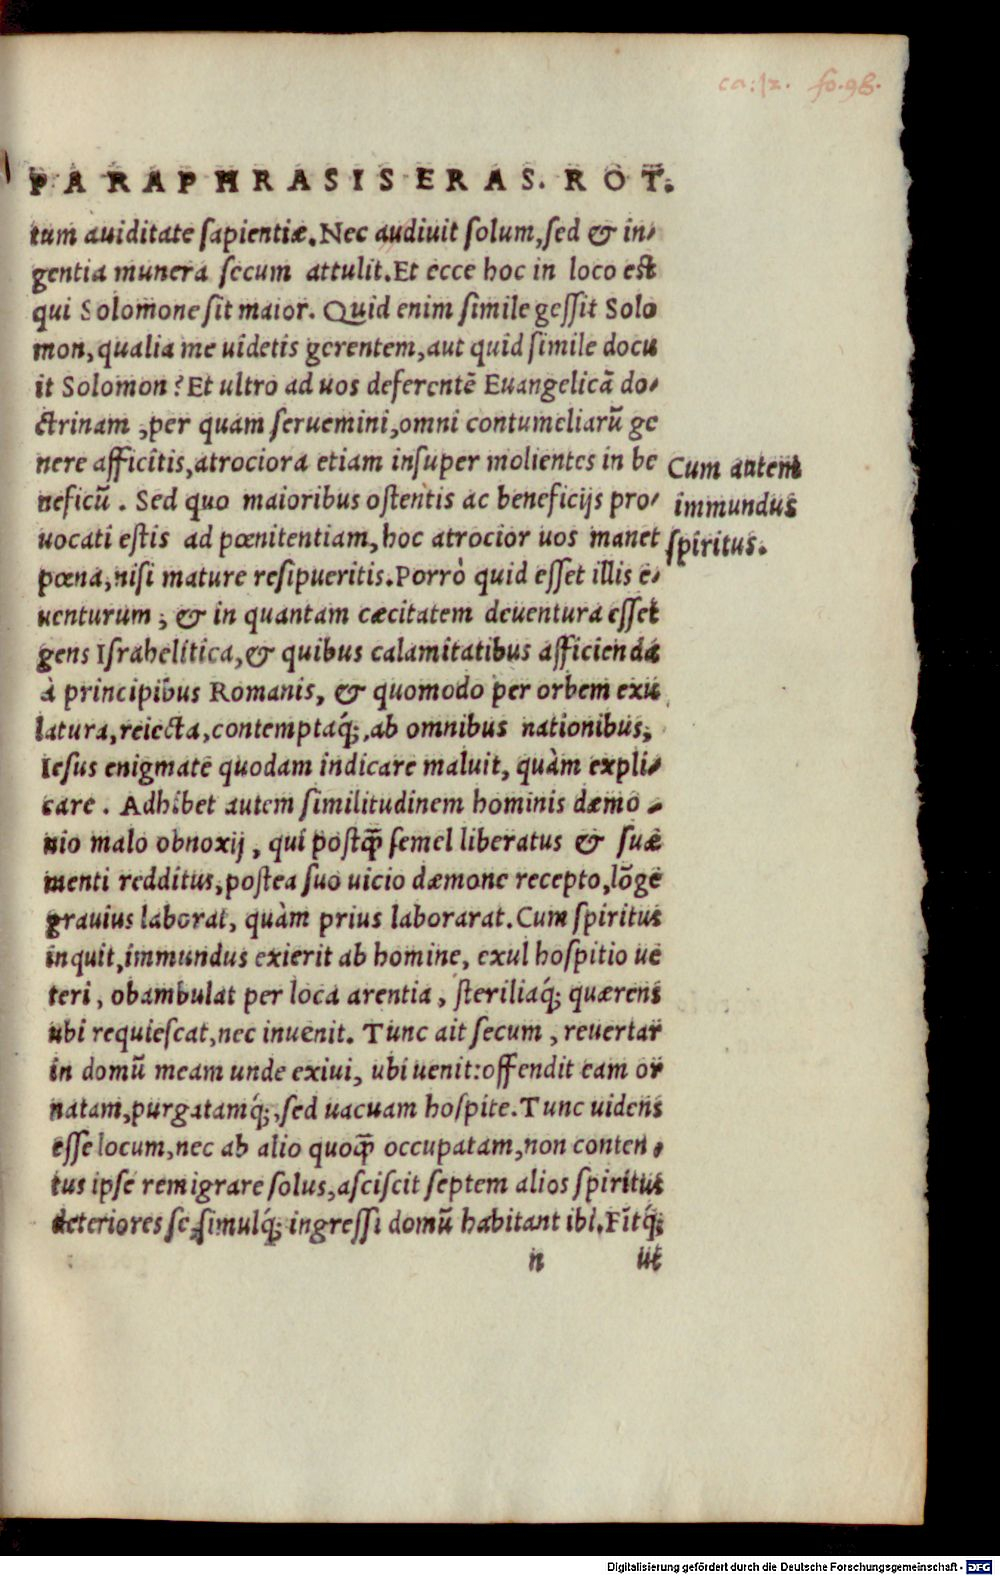 ca:12. fo.98.
PARAPHRASIS ERAS. ROT.
tum auiditate sapientiæ. Nec audiuit solum, sed & in-
gentia munera secum attulit. Et ecce hoc in loco est
qui Solomone sit maior. Quid enim simile gessit Solo
mon, qualia me uidetis gerentem, aut quid simile docu
it Solomon? Et ultro ad uos deferentẽ Euangelicã do-
ctrinam, per quam seruemini, omni contumeliarũ ge
nere afficitis, atrociora etiam insuper molientes in be
neficũ. Sed quo maioribus ostentis ac beneficijs pro-
uocati estis ad pœnitentiam, hoc atrocior uos manet
pœna, nisi mature resipueritis. Porrò quid esset illis e-
uenturum, & in quantam cæcitatem deuentura esset
gens Israhelitica, & quibus calamitatibus afficienda
à principibus Romanis, & quomodo per orbem exu
latura, reiecta, contemptaq́;, ab omnibus nationibus,
Iesus enigmate quodam indicare maluit, quàm expli-
care. Adhibet autem similitudinem hominis dæmo-
nio malo obnoxij, qui postq̃ semel liberatus & suæ
menti redditus, postea suo uicio dæmone recepto, lõge
grauius laborat, quàm prius laborarat. Cum spiritus
inquit, immundus exierit ab homine, exul hospitio ue
teri, obambulat per loca arentia, steriliaq́; quærens
ubi requiescat, nec inuenit. Tunc ait secum, reuertar
in domũ meam unde exiui, ubi uenit: offendit eam or
natam, purgatamq́;, sed uacuam hospite. Tunc uidens
esse locum, nec ab alio quoq̃ occupatam, non conten-
tus ipse remigrare solus, asciscit septem alios spiritus
deteriores se, simulq́; ingressi domũ habitant ibi. Fitq́;
n ut
Cum autem
immundus
spiritus.
Digitalisierung gefördert durch die Deutsche Forschungsgemeinschaft - DFG